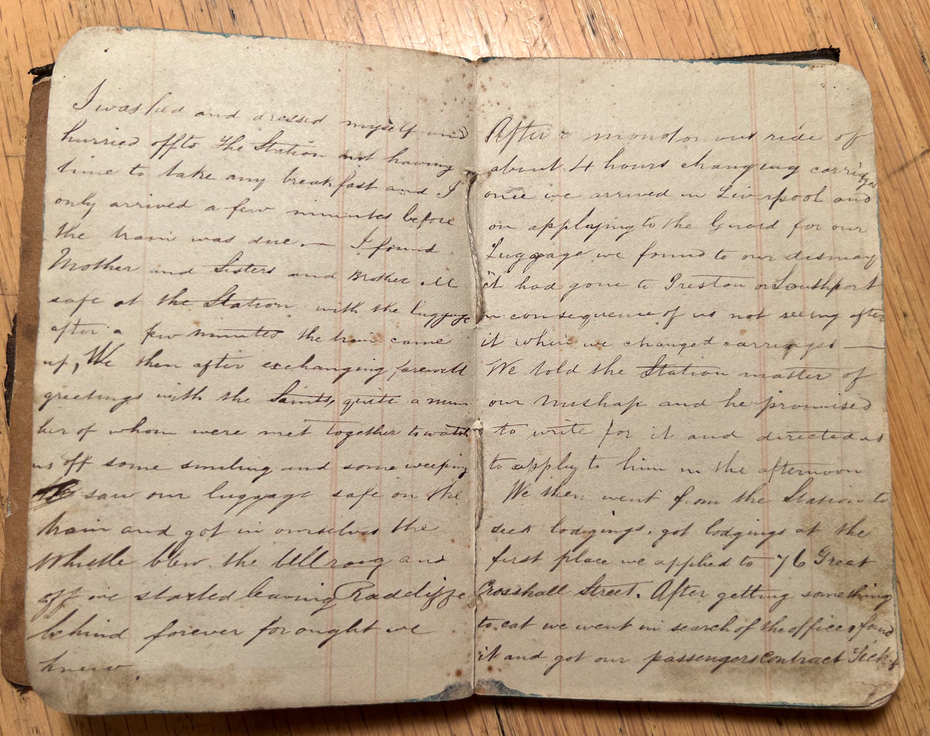 I washed and dressed myself and
hurried off to the Station not having
time to take any breakfast and I
only arrived a few minutes before
the train was due. — I found
Mother and Sisters and Brother all
safe at the Station, with the luggage
after a few minutes the train came
up, We then after exchanging farewell
greetings with the Saints, quite a num
ber of whom were met together to watch
us off some smiling and some weeping
saw our luggage safe on the
train and got in ourselves the
Whistle blew the bell rang and
off we started leaving Radcliffe
behind forever for ought we
knew
After a monotonous ride of
about 4 hours changing carriages
once we arrived in Liverpool and
on applying to the Guard for our
Luggage we found to our dismay
it had gone to Preston or Southport
in consequence of us not seeing after
it where we changed carriages —
We told the Station master of
our mishap and he promised
to write for it and directed us
to apply to him in the afternoon
We then went from the Station to
seek lodgings, got lodgings at the
first place we applied to 76 Great
Crosshall Street. After getting something
to eat we went in search of the office, found
it and got our passengers Contract Tickets